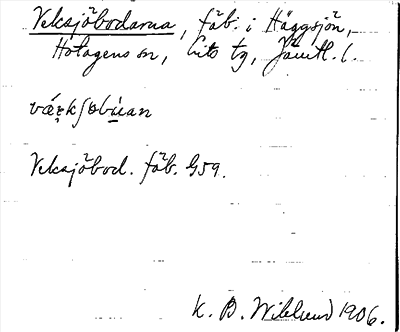 Veksjöbodarna, fäb. i Häggsjön,
Hotagens sn, Lits tg, Jämtl. l.
vǽrkʃøbúan
Veksjöbod. fäb. G59.
K. B. Wiklund 1906.